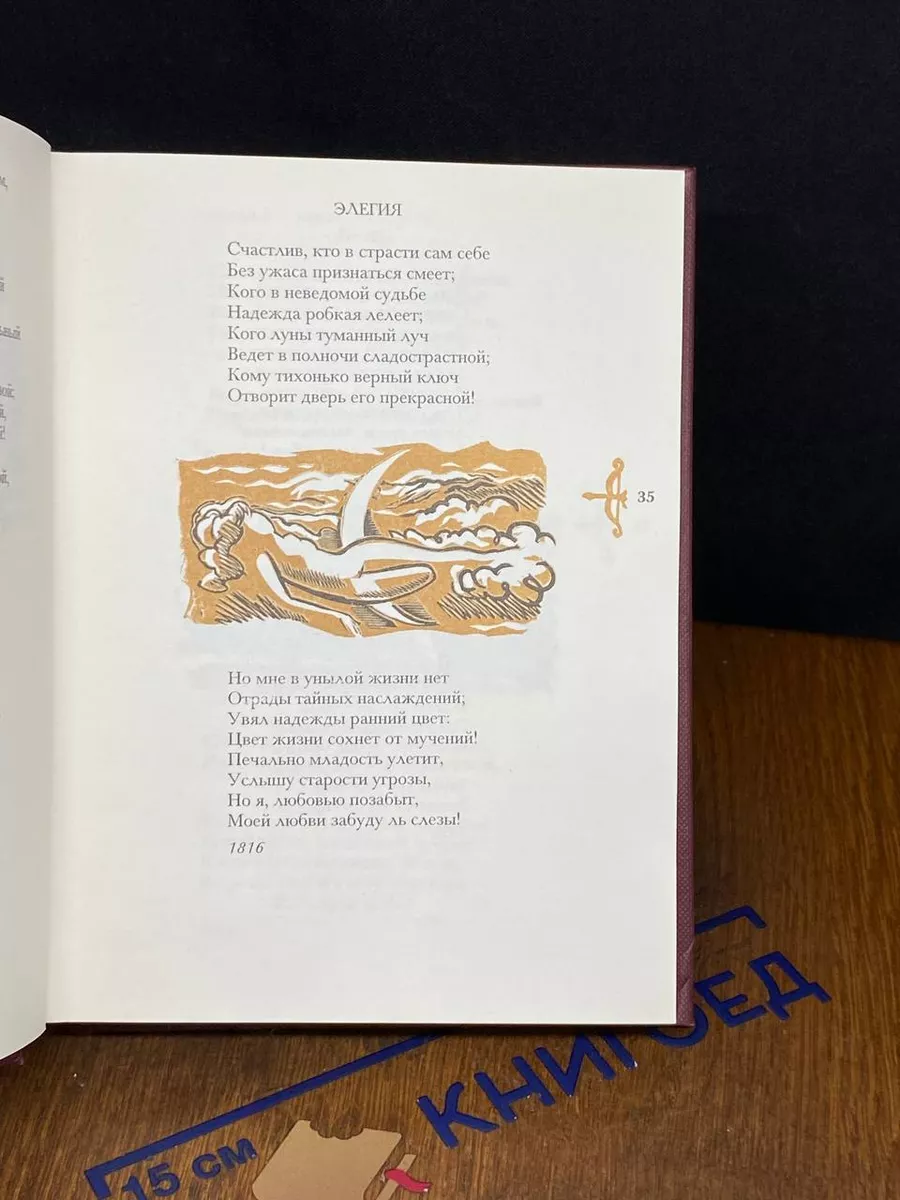 ЭЛЕГИЯ
Счастлив, кто в страсти сам себе
Без ужаса признаться смеет;
Кого в неведомой судьбе
Надежда робкая лелеет;
Кого луны туманный луч
Ведет в полночи сладострастной;
Кому тихонько верный ключ
Отворит дверь его прекрасной!
35
Но мне в унылой жизни нет
Отрады тайных наслаждений;
Увял надежды ранний цвет:
Цвет жизни сохнет от мучений!
Печально младость улетит,
Услышу старости угрозы,
Но я, любовью позабыт,
Моей любви забуду ль слезы!
1816
КНИГОЕД
15 см